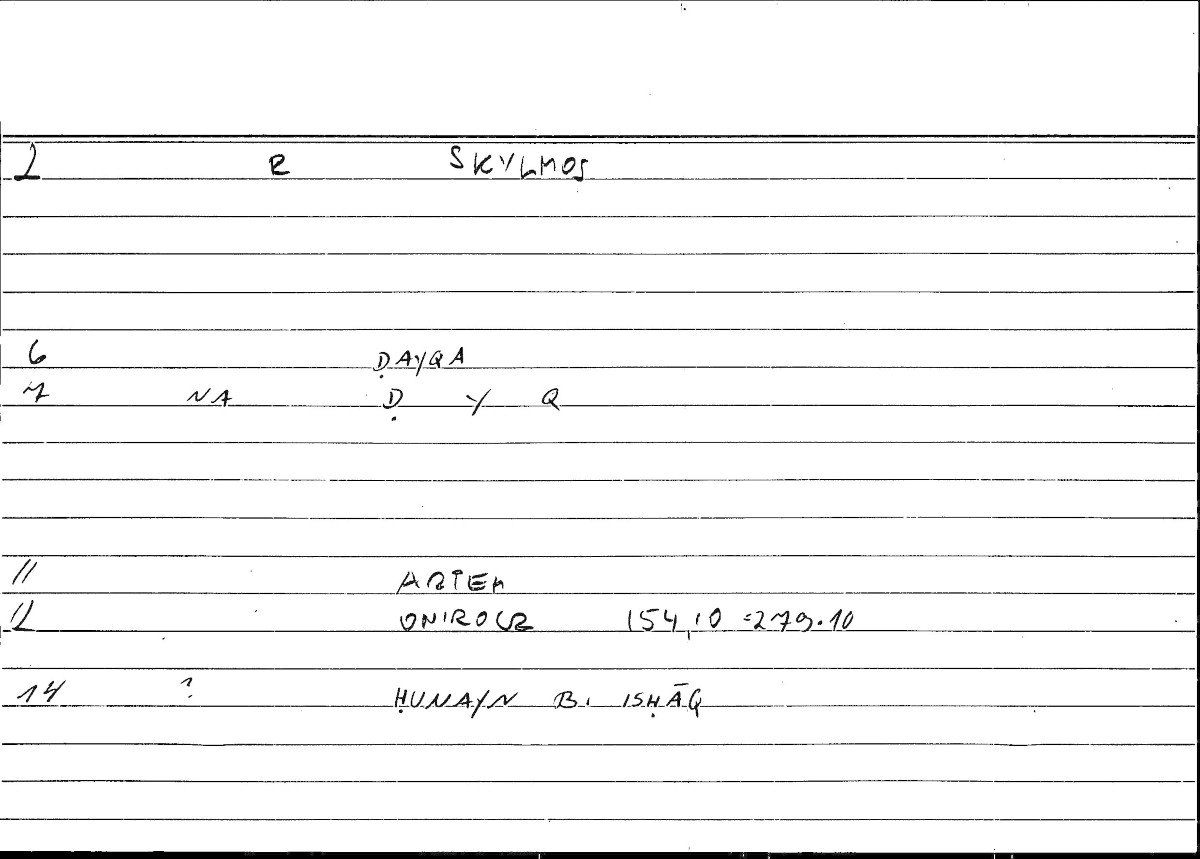 2 R SKYLMOS
6 ḌAYQA
7 NA Ḍ Y Q
11 ARTEM
12 ONIROCR 154,10 =279.10
14 ? ḤUNAYN B. ISḤĀQ